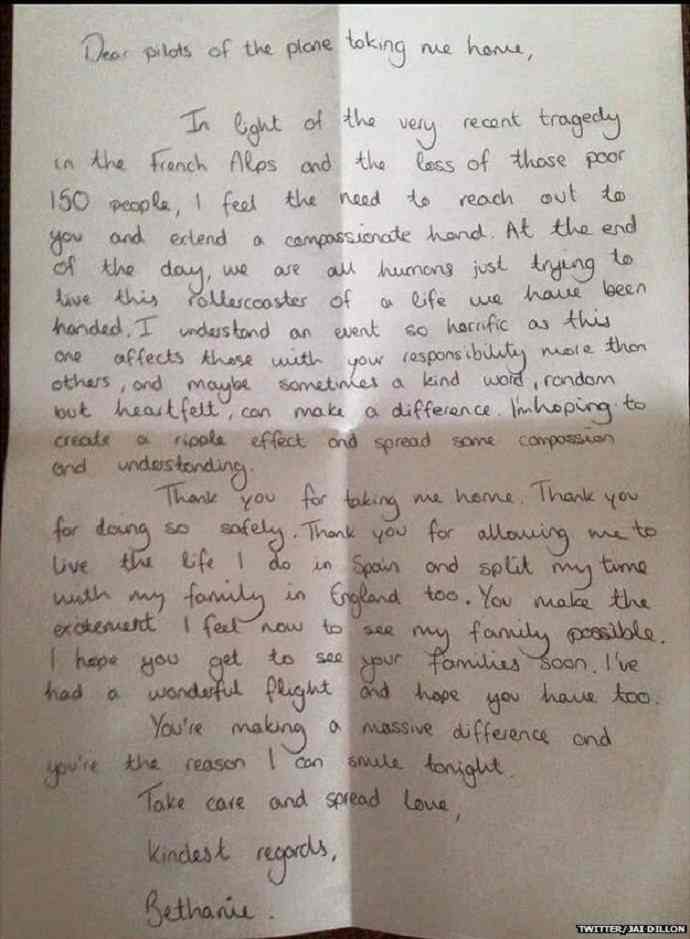 Dear pilots of the plane taking me home,
In light of the very recent tragedy
in the French Alps and the loss of those poor
150 people, I feel the need to reach out to
you and extend a compassionate hand. At the end
of the day, we are all humans just trying to
live this rollercoaster of a life we have been
handed. I understand an event so horrific as this
one affects those with your responsibility more than
others, and maybe sometimes a kind word, random
but heartfelt, can make a difference. I'm hoping to
create a ripple effect and spread some compassion
and understanding.
Thank you for taking me home. Thank you
for doing so safely. Thank you for allowing me to
live the life I do in Spain and split my time
with my family in England too. You make the
excitement I feel now to see my family possible.
I hope you get to see your families soon. I've
had a wonderful flight and hope you have too.
You're making a massive difference and
you're the reason I can smile tonight.
Take care and spread love,
Kindest regards,
Bethanie.
TWITTER/JAI DILLON